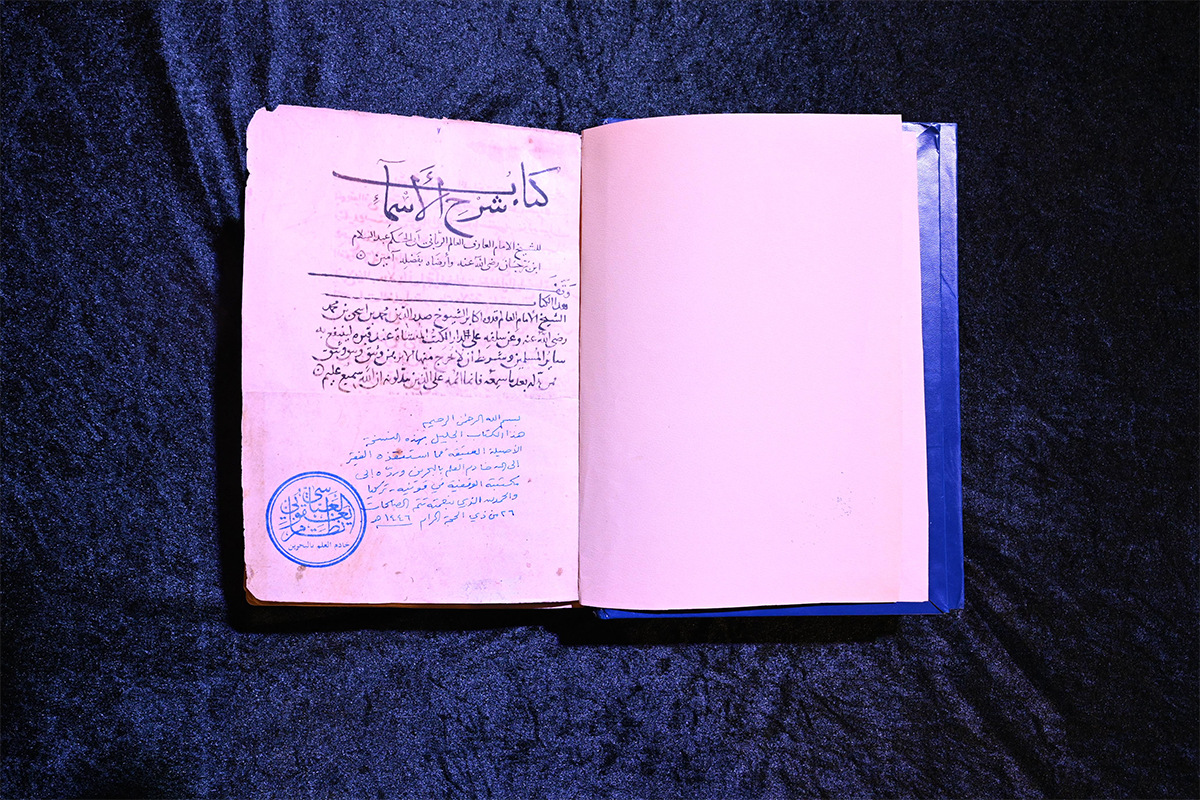 كتاب
شرح الأسمآء
للشيخ الامام العارف العالم الربانى ابى الحكم عبد السلام
ابن برجان رضى الله عنه وأرضاه بفضله آمين
وقف
هذا الكتاب
الشيخ الامام العالم قدوة اكابر الشيوخ صدر الدين محمد بن اسحق بن محمد
رضى الله عنه وعن سلفه على دار الكتب المنشاة عند قبره لينتفع به
ساير المسلمين وشرط ان لا يخرج منها الا برهن وثيق
بدله بعد ما سمعه فانما اثمه على الذين يبدلونه ان الله سميع عليم
بسم الله الرحمن الرحيم
هذا الكتاب الجليل بهذه النسخة
الأصيلة العتيقة مما استنقذه الفقير
إلى الله خادم العلم بالبحرين ورده إلى
مكتبته الوقفية في قونية - تركيا
والحمد لله الذي بنعمته تتم الصالحات
٢٦ من ذي الحجة الحرام ١٤٤٦ هـ
نظام يعقوبي العباسي
خادم العلم بالبحرين